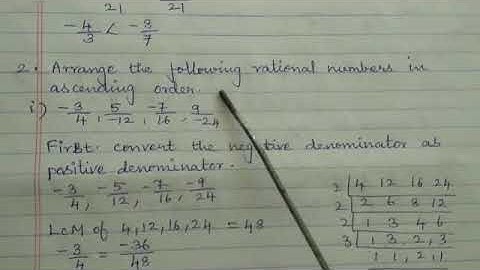 21 21
-4/3 < -3/7
2. Arrange the following rational numbers in
ascending order.
i) -3/4, 5/-12, -7/16, 9/-24
First: convert the negative denominator as
positive denominator.
-3/4, -5/12, -7/16, -9/24
LCM of 4,12,16,24 = 48
-3/4 = -36/48
2 | 4 12 16 24
2 | 2 6 8 12
2 | 1 3 4 6
3 | 1, 3, 2, 3
1, 1, 2, 1